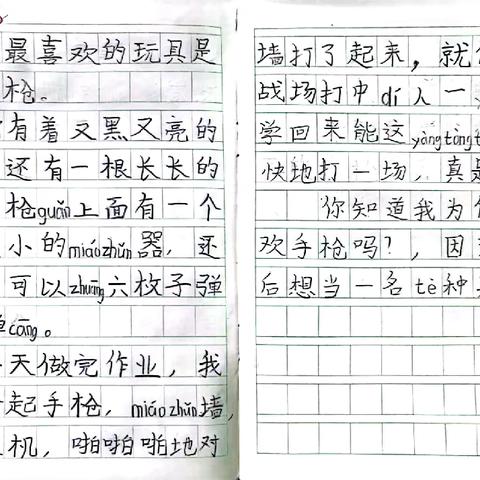 最喜欢的玩具是
枪。
有着又黑又亮的
还有一根长长的
枪guǎn上面有一个
小的miáozhǔn器，还
可以zhuāng六枚子弹
cāng。
天做完作业，我
起手枪，miáozhǔn墙，
机，啪啪啪地对
墙打了起来，就
战场打中dí人一
学回来能这yàngtòng
快地打一场，真是
你知道我为
欢手枪吗?，因
后想当一名tè种